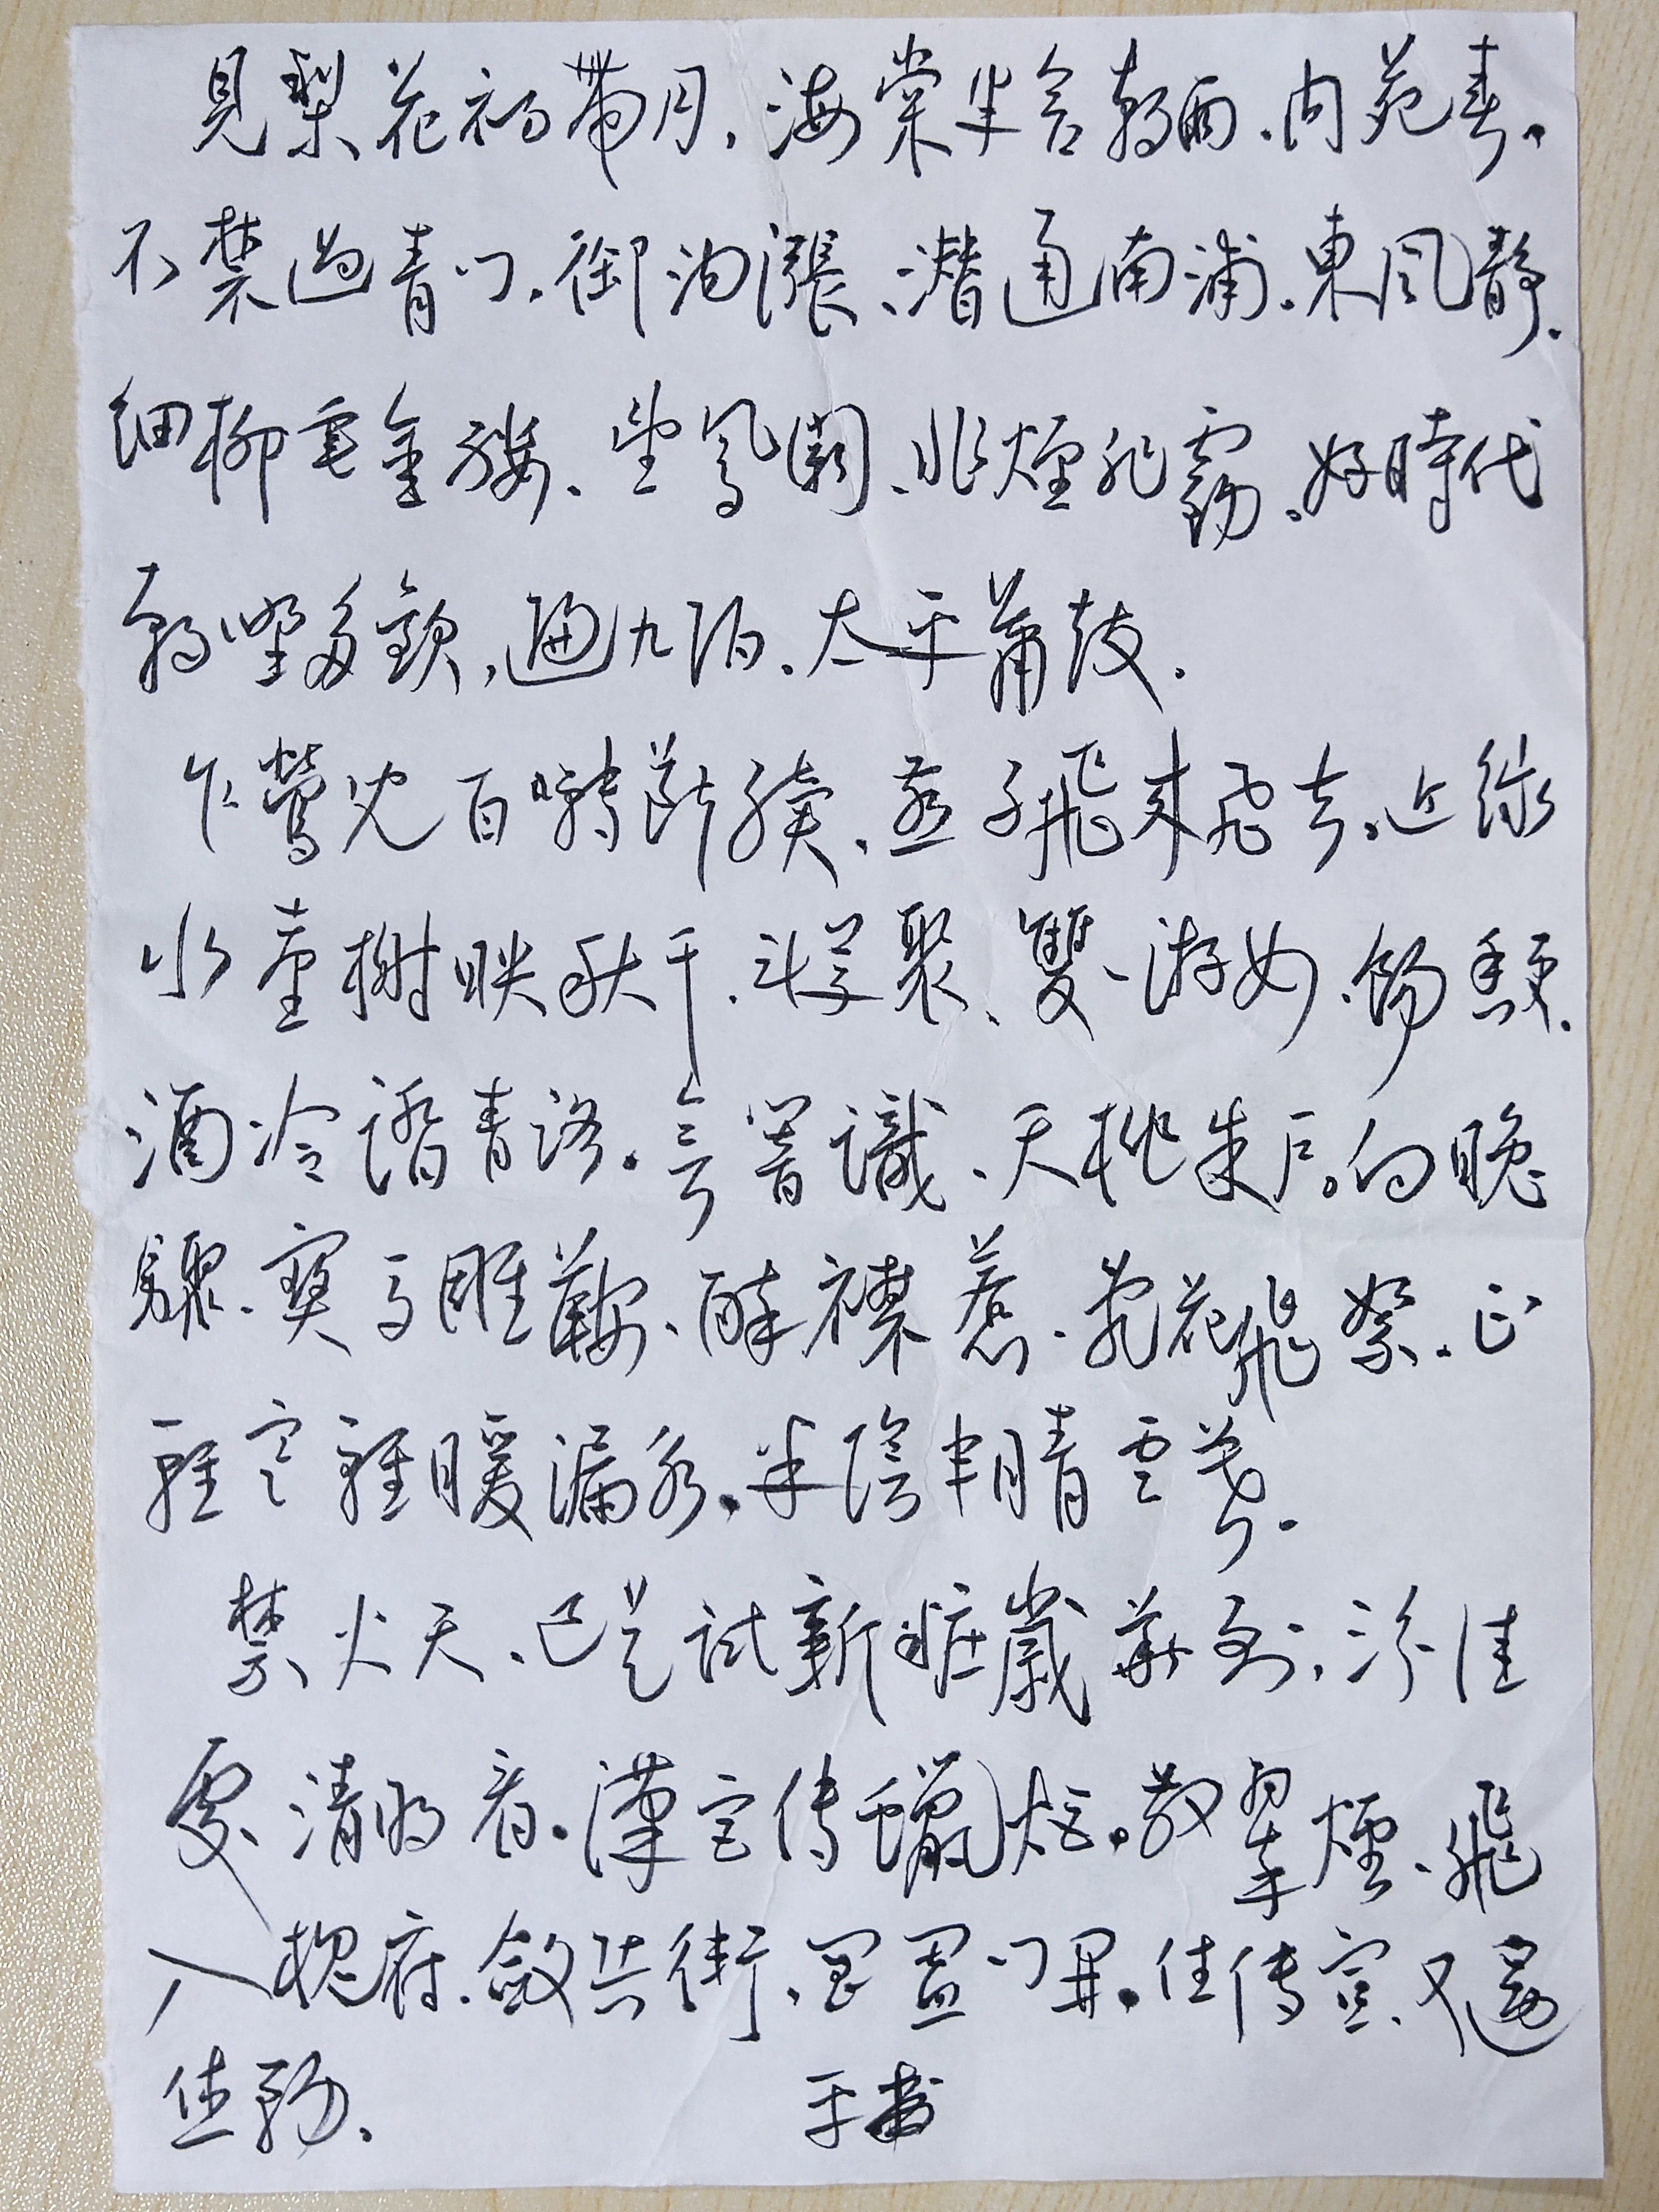 見梨花初帶月,海棠半含朝雨.内苑春、
不禁過青门.御沟漲、潛通南浦.東风靜.
细柳垂金縷.望鳳闕、非煙非霧.好時代
朝野多歡,遍九陌.太平蕭鼓.
乍鶯兒百囀斷續、燕子飛來飛去.近綠
水臺榭映秋千.斗草聚、雙、游女.餳香更.
酒冷踏青路.會暗識、夭桃朱户。向晚
驟、寶马雕鞍、醉襟惹.亂花飛絮.正
輕寒輕暖漏永.半陰半晴雲暮.
禁火天、已是試新妝歲華到,三分佳
處、清明看.漢宫传蠟炬.散翠煙、飛
入槐府.斂兵衛、閶闔门開.住传宣、又還
休務.	手書